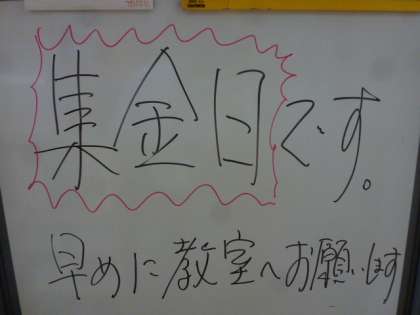 集金日です。
早めに教室へお願いします